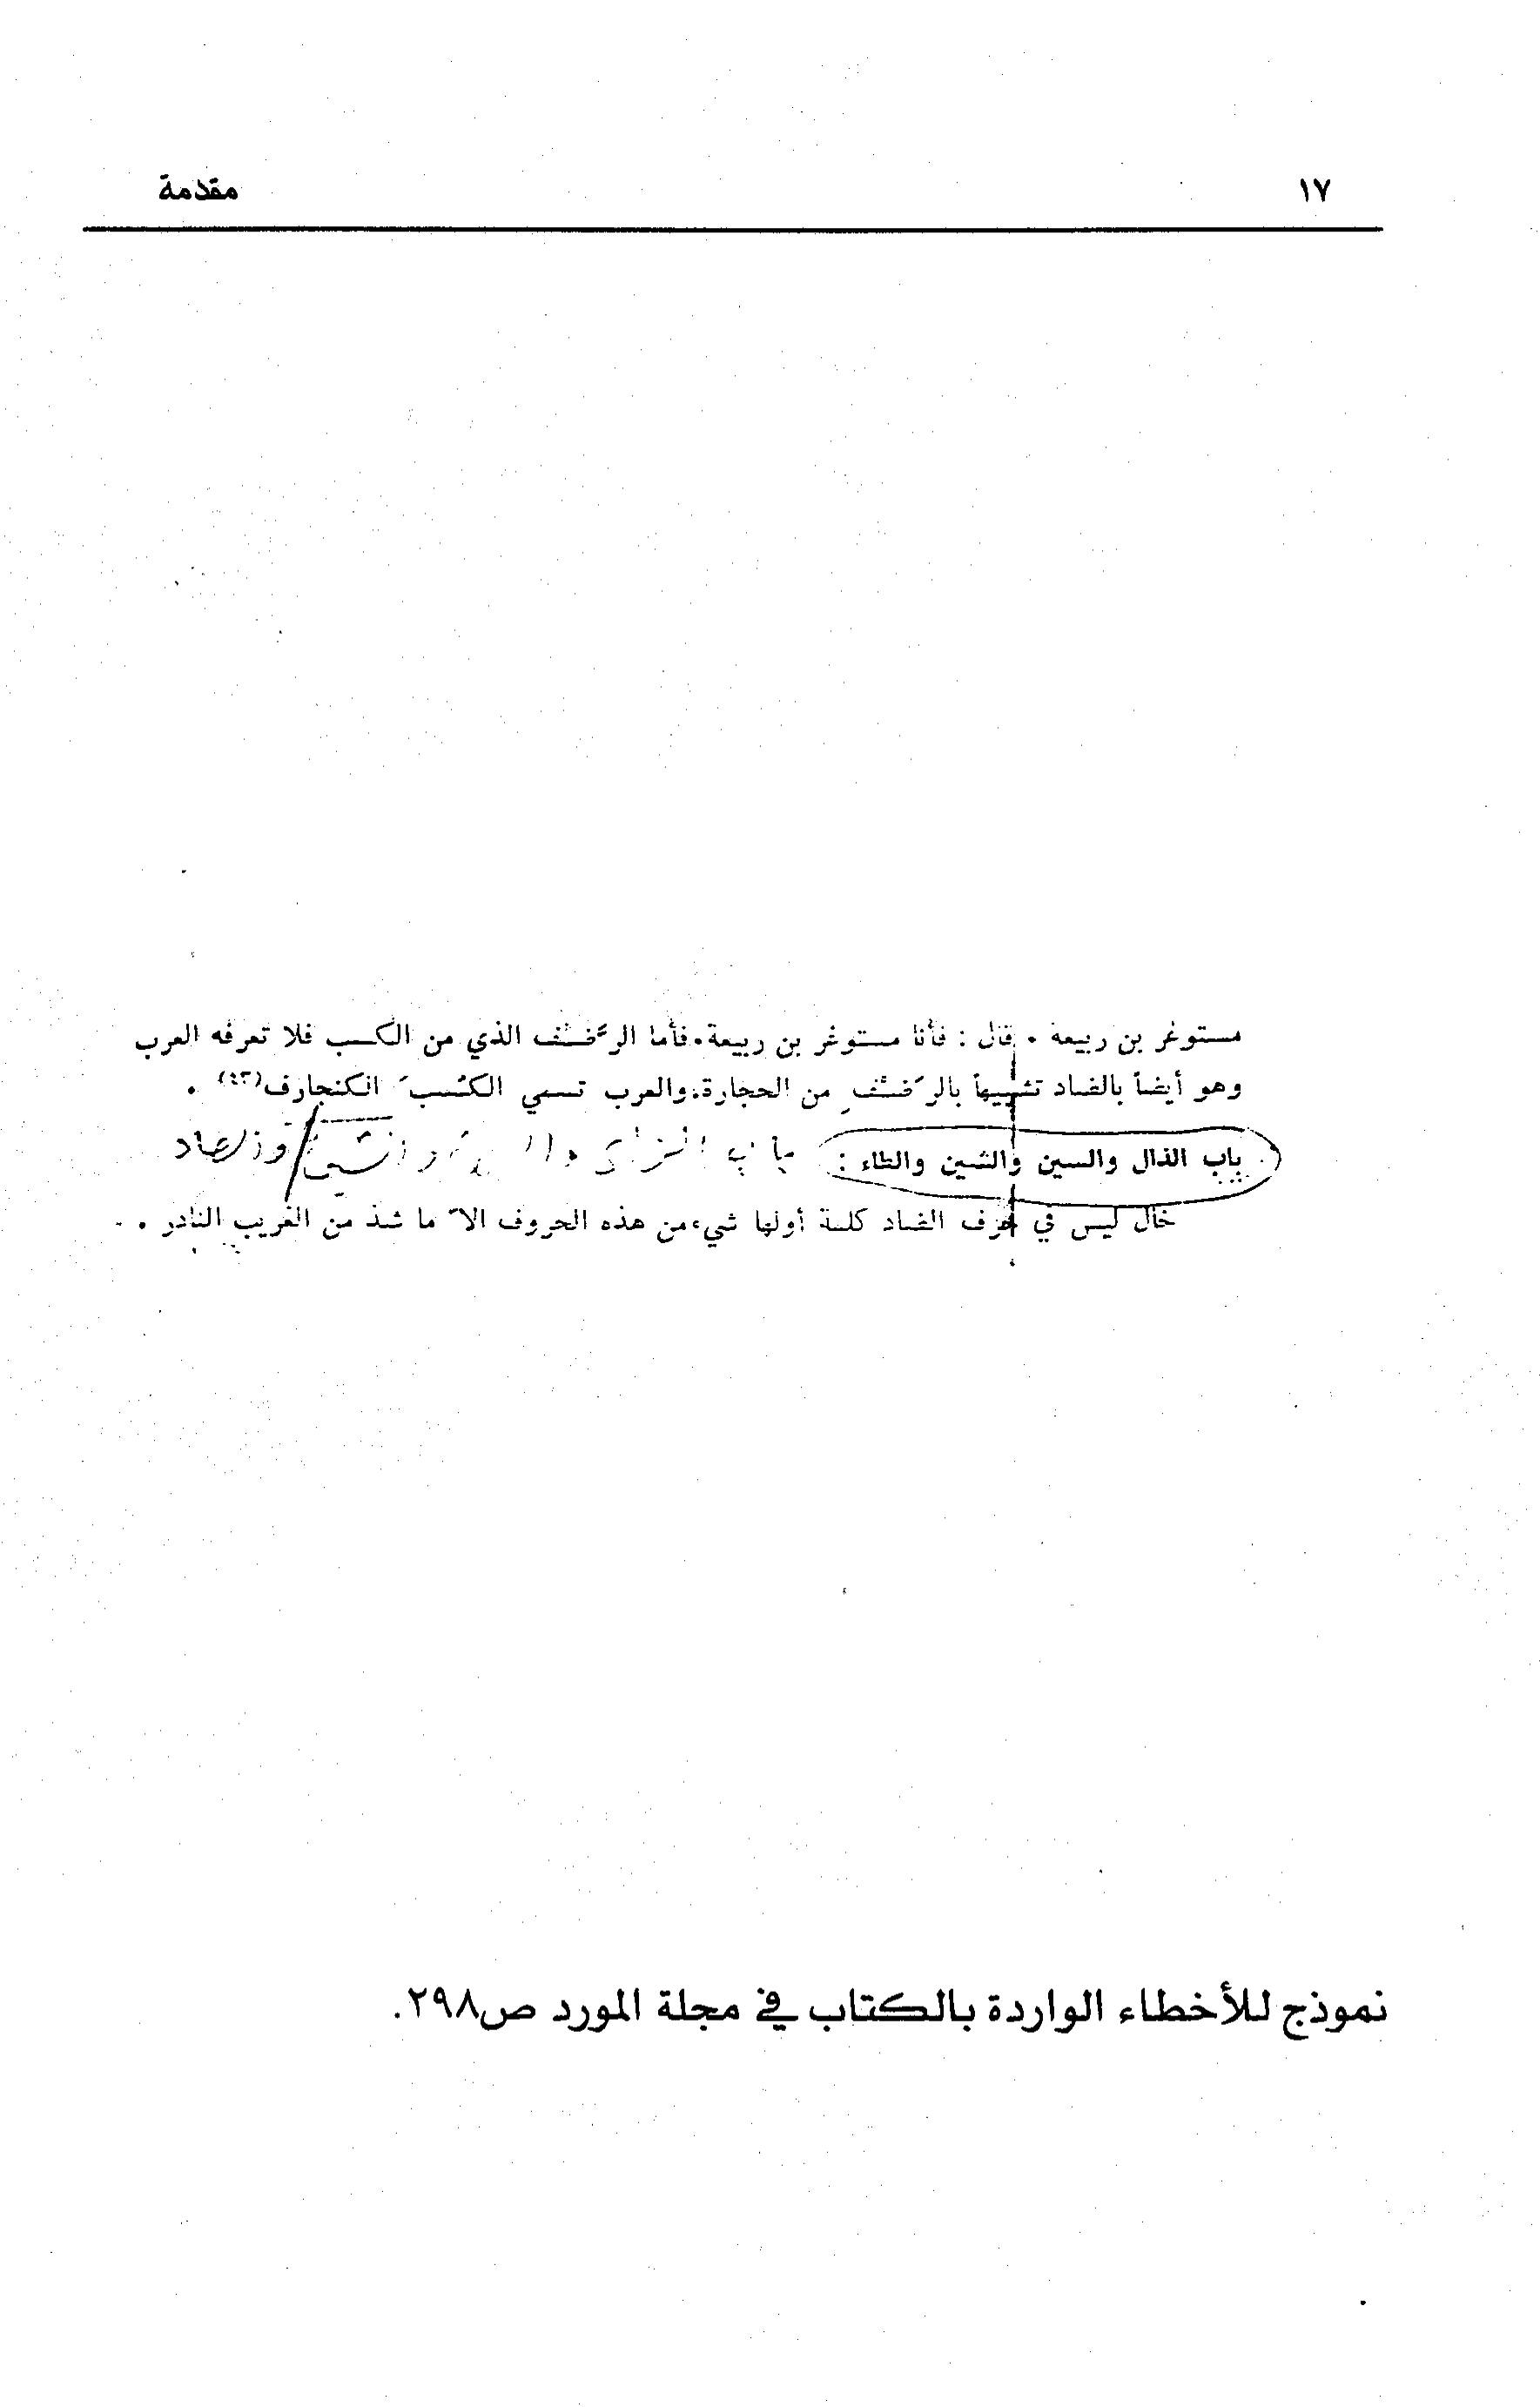 ١٧ مقدمة
مستوغر بن ربيعة ٠ قال : فأنا مستوغر بن ربيعة٠فأما الذي من الكسب فلا تعرفه العرب
وهو أيضاً بالضاد تشبيهاً من الحجارة،والعرب تسمي الكُسبَ (٤٣) ٠
باب الذال والسين والشين والظاء : باب الزاي وال والشين والصاد
خال ليس في حرف الضاد كلمة أولها شيء من هذه الحروف الاّ ما شذ من الغريب النادر ٠
نموذج للأخطاء الواردة بالكتاب في مجلة المورد ص٢٩٨.